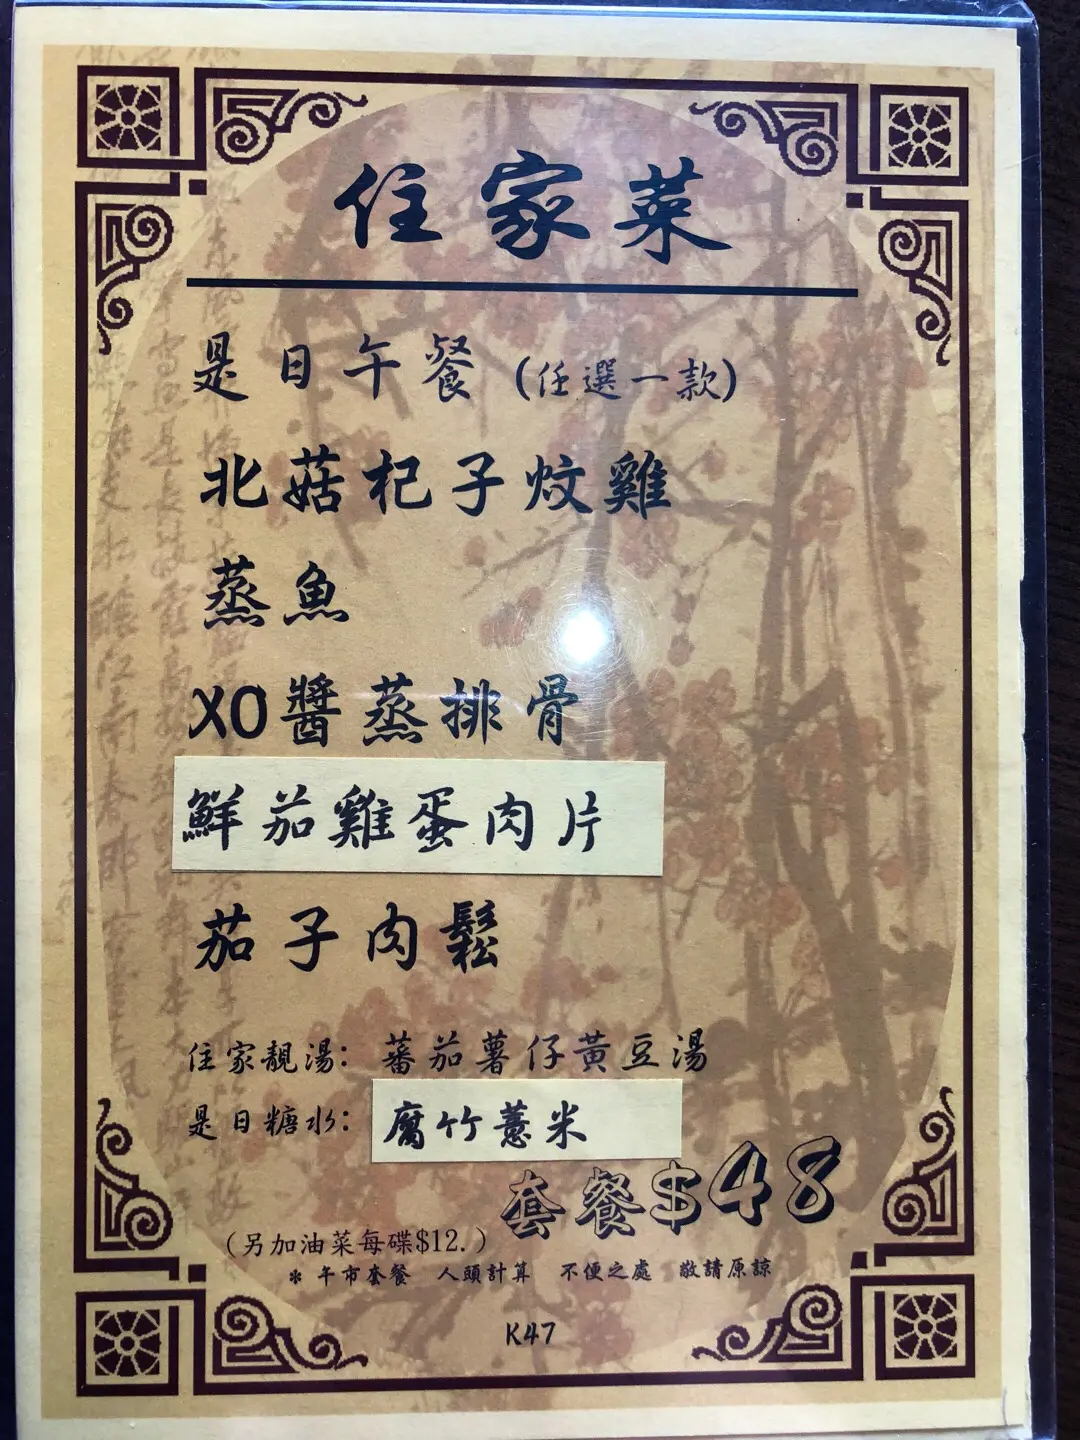 住家菜
是日午餐 (任選一款)
北菇杞子炆雞
蒸魚
XO醬蒸排骨
鮮茄雞蛋肉片
茄子肉鬆
住家靚湯: 蕃茄薯仔黃豆湯
是日糖水: 腐竹薏米
套餐$48
(另加油菜每碟$12.)
* 午市套餐 人頭計算 不便之處 敬請原諒
K47